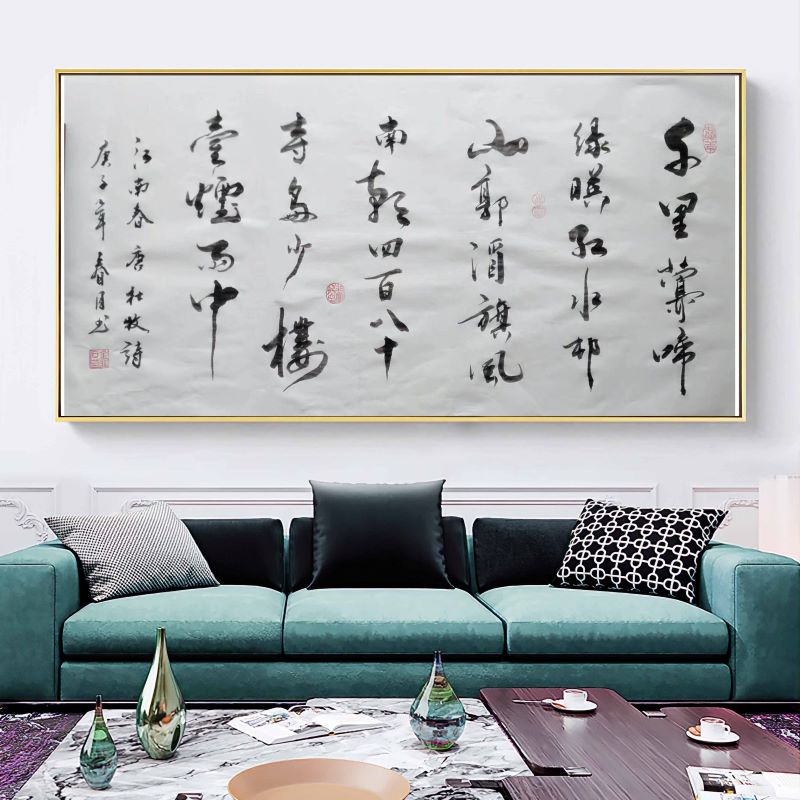 千里鶯啼
绿暎红水邨
山郭酒旗风
南朝四百八十
寺多少樓
臺煙雨中
江南春 唐 杜牧詩
庚子年 春月书